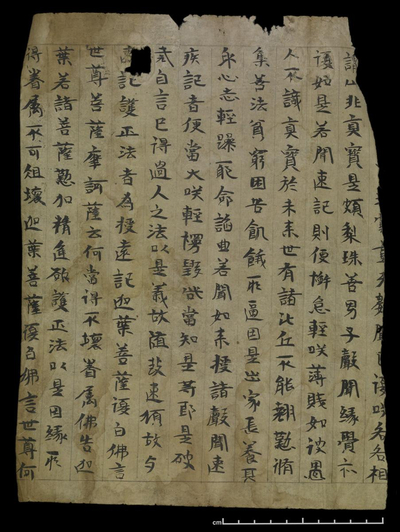 咲各各相
非真寶是頗梨珠善男子聲聞緣覺亦
復如是若聞速記則便懈怠輕咲薄賤如彼愚
人不識真寶於未來世有諸比丘不能翹懃脩
集善法貧窮困苦飢餓所逼因是出家長養其
身心志輕躁邪命諂曲若聞如來授諸聲聞速
疾記者便當大咲輕慢毀呰當知是等即是破
戒自言已得過人之法以是義故隨發速願故与
記護正法者為授遠記迦葉菩薩復白佛言
世尊菩薩摩訶薩云何當得不壞眷屬佛告迦
葉若諸菩薩懃加精進欲護正法以是因緣所
得眷屬不可俎壞迦葉菩薩復白佛言世尊何
cm